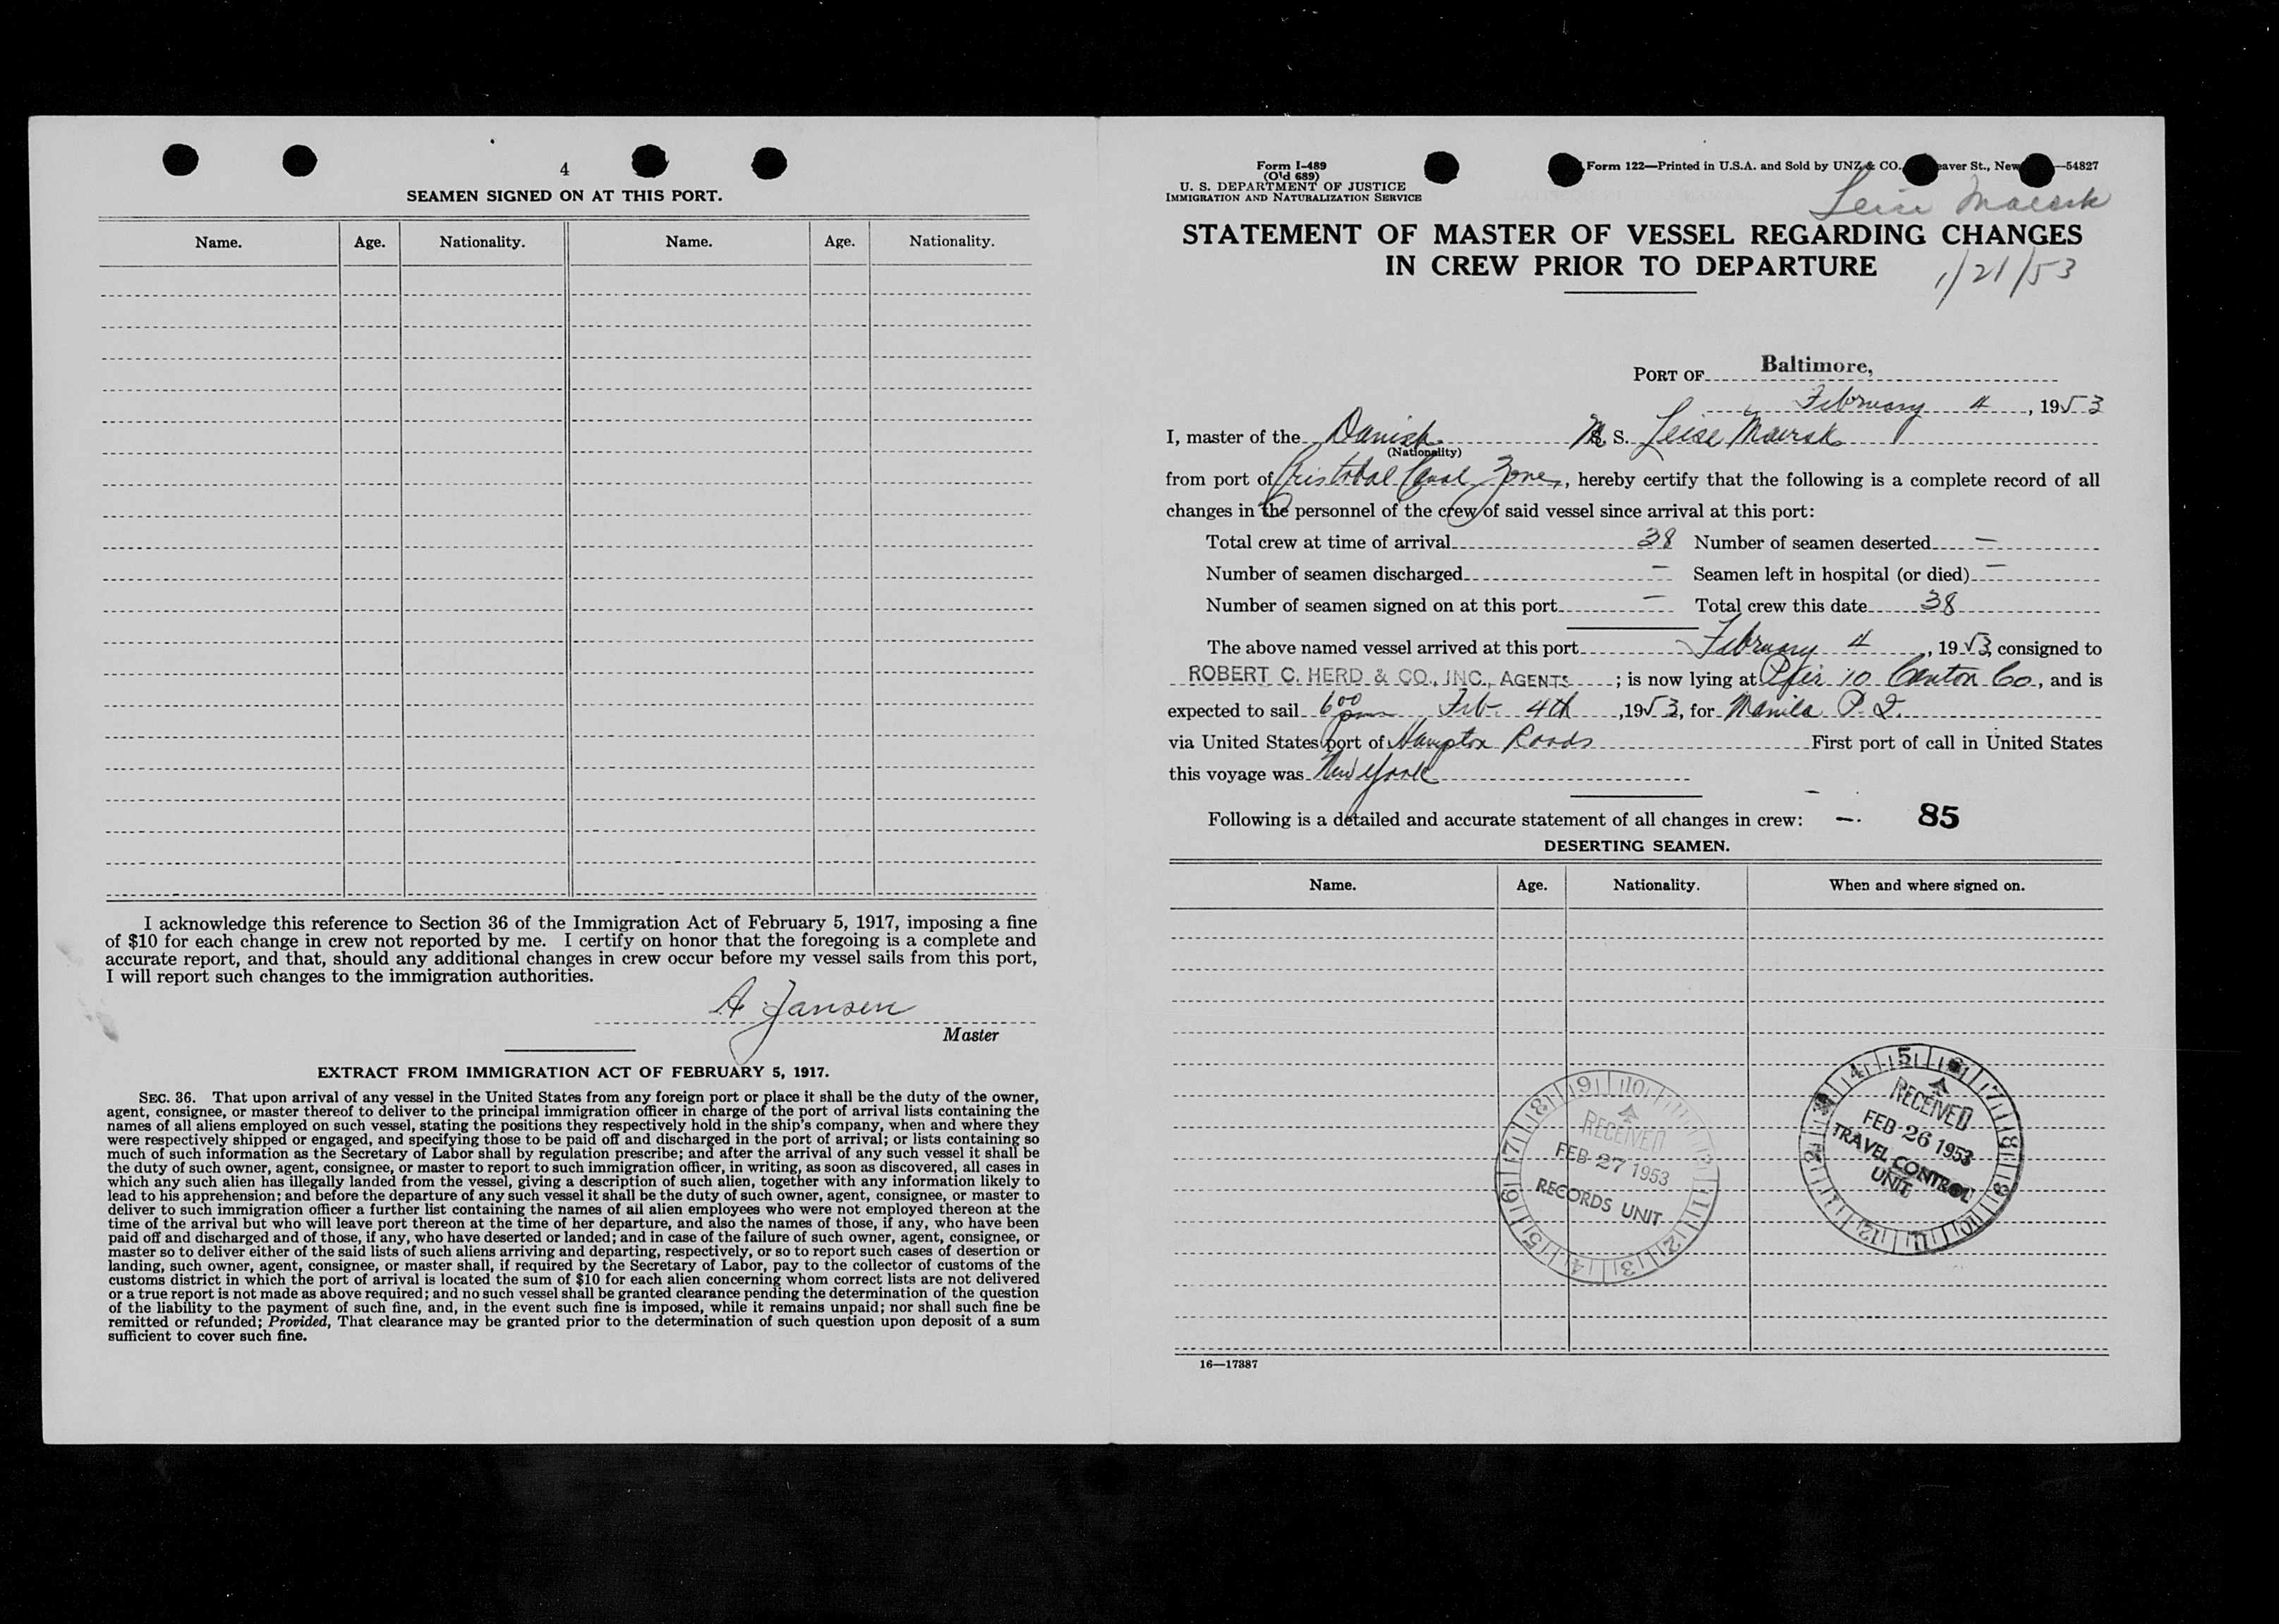 4
SEAMEN SIGNED ON AT THIS PORT.
Name. Age. Nationality. Name. Age. Nationality.
I acknowledge this reference to Section 36 of the Immigration Act of February 5, 1917, imposing a fine
of $10 for each change in crew not reported by me. I certify on honor that the foregoing is a complete and
accurate report, and that, should any additional changes in crew occur before my vessel sails from this port,
I will report such changes to the immigration authorities.
A Jansen
Master
EXTRACT FROM IMMIGRATION ACT OF FEBRUARY 5, 1917.
SEC. 36. That upon arrival of any vessel in the United States from any foreign port or place it shall be the duty of the owner,
agent, consignee, or master thereof to deliver to the principal immigration officer in charge of the port of arrival lists containing the
names of all aliens employed on such vessel, stating the positions they respectively hold in the ship's company, when and where they
were respectively shipped or engaged, and specifying those to be paid off and discharged in the port of arrival; or lists containing so
much of such information as the Secretary of Labor shall by regulation prescribe; and after the arrival of any such vessel it shall be
the duty of such owner, agent, consignee, or master to report to such immigration officer, in writing, as soon as discovered, all cases in
which any such alien has illegally landed from the vessel, giving a description of such alien, together with any information likely to
lead to his apprehension; and before the departure of any such vessel it shall be the duty of such owner, agent, consignee, or master to
deliver to such immigration officer a further list containing the names of all alien employees who were not employed thereon at the
time of the arrival but who will leave port thereon at the time of her departure, and also the names of those, if any, who have been
paid off and discharged and of those, if any, who have deserted or landed; and in case of the failure of such owner, agent, consignee, or
master so to deliver either of the said lists of such aliens arriving and departing, respectively, or so to report such cases of desertion or
landing, such owner, agent, consignee, or master shall, if required by the Secretary of Labor, pay to the collector of customs of the
customs district in which the port of arrival is located the sum of $10 for each alien concerning whom correct lists are not delivered
or a true report is not made as above required; and no such vessel shall be granted clearance pending the determination of the question
of the liability to the payment of such fine, and, in the event such fine is imposed, while it remains unpaid; nor shall such fine be
remitted or refunded; Provided, That clearance may be granted prior to the determination of such question upon deposit of a sum
sufficient to cover such fine.
Form I-489
(Old 689)
U. S. DEPARTMENT OF JUSTICE
IMMIGRATION AND NATURALIZATION SERVICE
Form 122—Printed in U.S.A. and Sold by UNZ & CO. eaver St., New —54827
Leise Maersk
STATEMENT OF MASTER OF VESSEL REGARDING CHANGES
IN CREW PRIOR TO DEPARTURE
1/21/53
PORT OF Baltimore,
February 4, 1953
I, master of the Danish M. S. Leise Maersk
(Nationality)
from port of Cristobal Canal Zone, hereby certify that the following is a complete record of all
changes in the personnel of the crew of said vessel since arrival at this port:
Total crew at time of arrival 38 Number of seamen deserted —
Number of seamen discharged — Seamen left in hospital (or died) —
Number of seamen signed on at this port — Total crew this date 38
The above named vessel arrived at this port February 4, 1953, consigned to
ROBERT C. HERD & CO., INC., AGENTS; is now lying at Pier 10 Canton Co, and is
expected to sail 6 00 pm Feb. 4th, 1953, for Manila P. I.
via United States port of Hampton Roads First port of call in United States
this voyage was New York
Following is a detailed and accurate statement of all changes in crew: —. 85
DESERTING SEAMEN.
Name. Age. Nationality. When and where signed on.
RECEIVED
FEB 27 1953
RECORDS UNIT
RECEIVED
FEB 26 1953
TRAVEL CONTROL
UNIT
16—17387